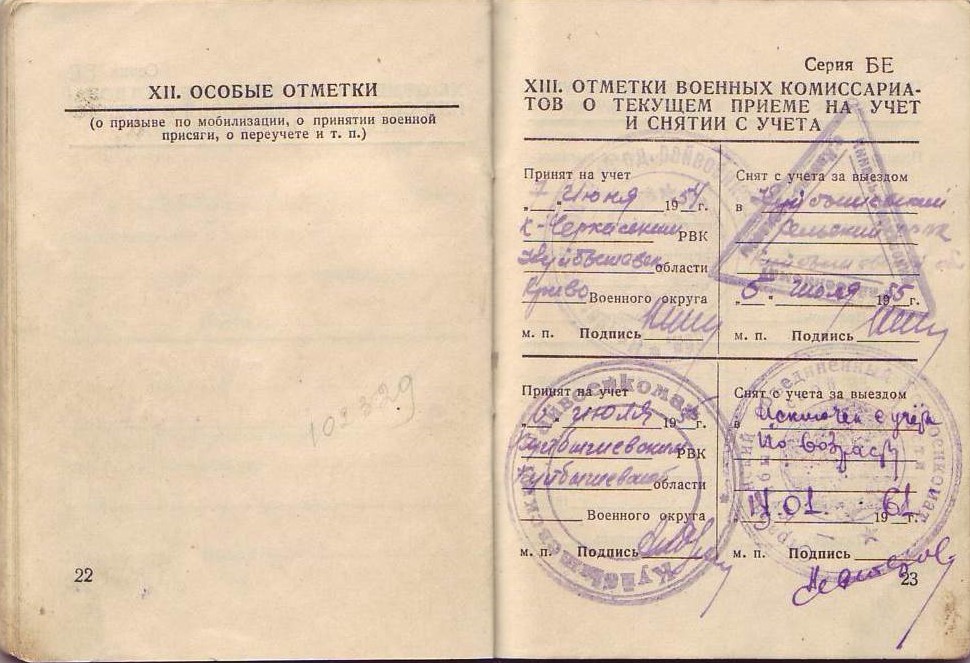 XII. ОСОБЫЕ ОТМЕТКИ
(о призыве по мобилизации, о принятии военной
присяги, о переучете и т. п.)
109329
22
Серия БЕ
XIII. ОТМЕТКИ ВОЕННЫХ КОМИССАРИА-
ТОВ О ТЕКУЩЕМ ПРИЕМЕ НА УЧЕТ
И СНЯТИИ С УЧЕТА
Принят на учет
„7" июня 1954 г.
К-Черкасским РВК
Куйбышевск области
Приво Военного округа
м. п. Подпись
Снят с учета за выездом
в Куйбышевский
Сельский
„5" июля 1955 г.
м. п. Подпись
Принят на учет
июля 19 г.
Куйбышевским РВК
Куйбышевской области
Военного округа
м. п. Подпись
Снят с учета за выездом
в Исключен с учёта
по возрасту
01 1961 г.
м. п. Подпись
23